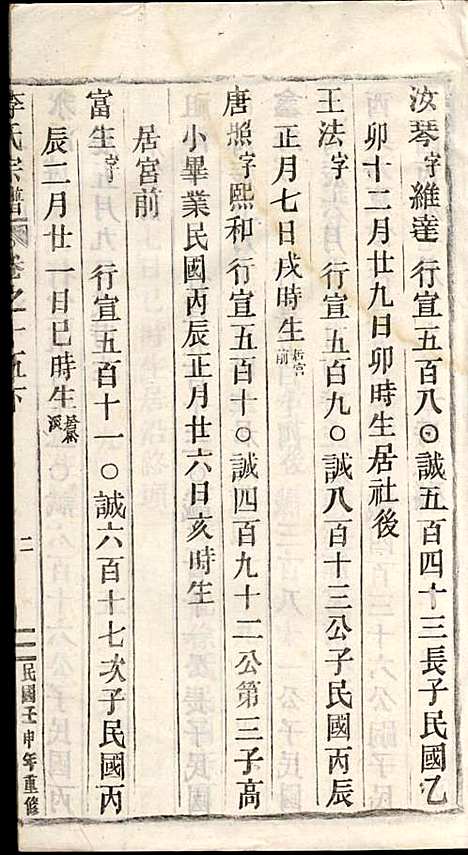 汝琴字維達行宣五百八○誠五百四十三長子民國乙
卯十二月廿九日卯時生居社後
王法字 行宣五百九○誠八百十三公子民國丙辰
正月七日戌時生居宮前
唐照字熙和行宣五百十○誠四百九十二公第三子高
小畢業民國丙辰正月廿六日亥時生
居宮前
富生字 行宣五百十一○誠六百十七次子民國丙
辰二月廿一日巳時生蒼溪
李氏宗譜 卷之十五下 二 民國壬申年重修